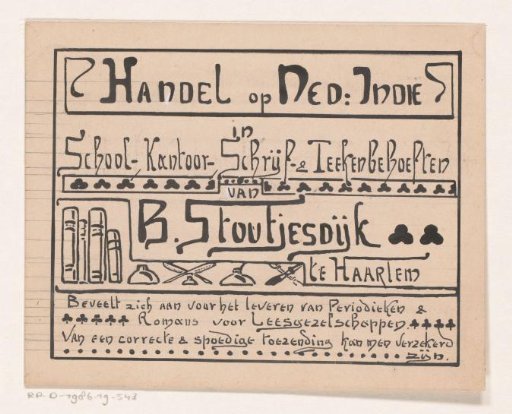 Handel op Ned: Indie
in
School- Kantoor- Schrijf- & Teekenbehoeften
van
B. Stoutjesdijk
te Haarlem
Beveelt zich aan voor het leveren van Periodieken &
Romans voor Leesgezelschappen
Van een correcte & spoedige toezending kan men verzekerd
zijn.
RP-D-1986-19-543